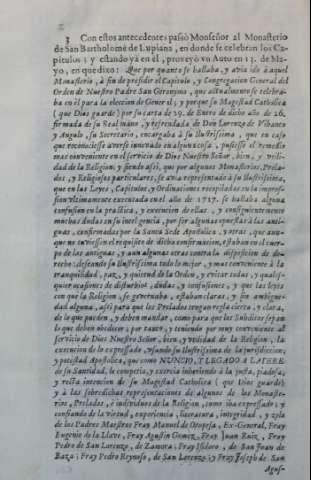 3 Con estos antecedentes passò Monseñor al Monasterio
de San Bartholomè de Lupiana, en donde se celebran los Ca-
pitulos; y estando yà en el, proveyò vn Auto en 13. de Ma-
yo, en que dixo: Que por quanto se hallaba, y avia ido à aquel
Monasterio, à fin de presidir el Capitulo, y Congregacion General del
Orden de Nuestro Padre San Geronymo, que actualmente se celebra-
ba en èl para la eleccion de General; y porque su Magestad Catholica
(que Dios guarde) por su carta de 29. de Enero de dicho año de 26,
firmada de su Real mano, y refrendada de Don Lorenzo de Vibanco
y Angulo, su Secretario, encargaba à su Ilustrissima, que en caso
que reconociesse averse innovado en alguna cosa, pusiesse el remedio
mas conveniente en el servicio de Dios Nuestro Señor, bien, y vtili-
dad de la Religion; y siendo assi, que por algunos Monasterios, Prela-
dos, y Religiosos particulares, se avia representado à su Ilustrissima,
que en las Leyes, Capitulos, y Ordinaciones recopiladas en la impres-
sion vltimamente executada en el año de 1717. se hallaba alguna
confusion en la practica, y execucion de ellas, y consiguientemente
muchas dudas en su inteligencia, por ser algunas opuestas à las anti-
guas, confirmadas por la Santa Sede Apostolica, y otras, que aun-
que no tuviessen el requisito de dicha confirmacion, estaban en el cuer-
po de las antiguas, y aun algunas otras contra la disposicion de de-
recho: deseando su Ilustrissima todo lo mejor, y mas conveniente à la
tranquilidad, paz, y quietud de la Orden, y evitar todas, y quales-
quier ocasiones de disturbios, dudas, y confusiones, y que las leyes
con que la Religion, se governaba, estaban claras, y sin ambigue-
dad alguna, assi para que los Prelados tengan regla cierta, y clara,
de lo que pueden, y deben mandar, como para que los Subditos sepan
lo que deben obedecer; por tanto, y teniendo por muy conveniente al
servicio de Dios Nuestro Señor, bien, y vtilidad de la Religion, la
execucion de lo expressado, vsando su Ilustrissima de la jurisdiccion,
y potestad Apostolica, que como NUNCIO, Y LEGADO A LATERE
de su Santidad, le competia, y exercia inheriendo à la justa, piadosa,
y recta intencion de su Magestad Catholica (que Dios guarde)
y à las sobredichas representaciones de algunos de los Monaste-
rios, Prelados, è individuos de la Religion, como iba expressado; y
confiando de la virtud, experiencia, literatura, integridad, y zelo
de los Padres Maestros Fray Manuel de Oropesa, Ex-General, Fray
Eugenio de la Llave, Fray Agustin Gomez, Fray Juan Ruiz, Fray
Pedro de San Lorenzo, de Zamora; Fray Isidoro, de San Juan de
Baza; Fray Pedro Reynoso, de San Lorenzo; y Fray Joseph de San
Agus-